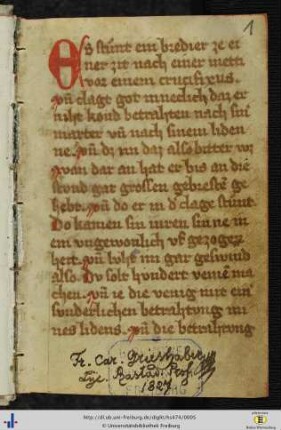 1
Es stůnt ein bredier ze ei
ner zit nach einer metti
vor einem crucifixus.
Vn̄ clagt got inneclich daz er
niht kond betrahten nach sin̄
marter vn̄ nach sinem liden
ne. Vn̄ dz im daz also bitter wz
wan dar an hat er bis an die
stund gar grossen gebresten ge
hebt. Vn̄ do er in d' clage stůnt.
Do kamen sin inren sinne in
ein vngewonlich vf gezogen
heit. Vn̄ luht im gar geswind
also. Du solt hundert venien̄ ma
chen. Vn̄ ie die venig mit ein'
sunderlichen betrahtung mi
nes lidens. Vn̄ die betrahtung
Fr. Car. Grieshaber
Lyc. Rastad. Prof.
1827
http://dl.ub.uni-freiburg.de/diglit/hs474/0005
© Universitätsbibliothek Freiburg